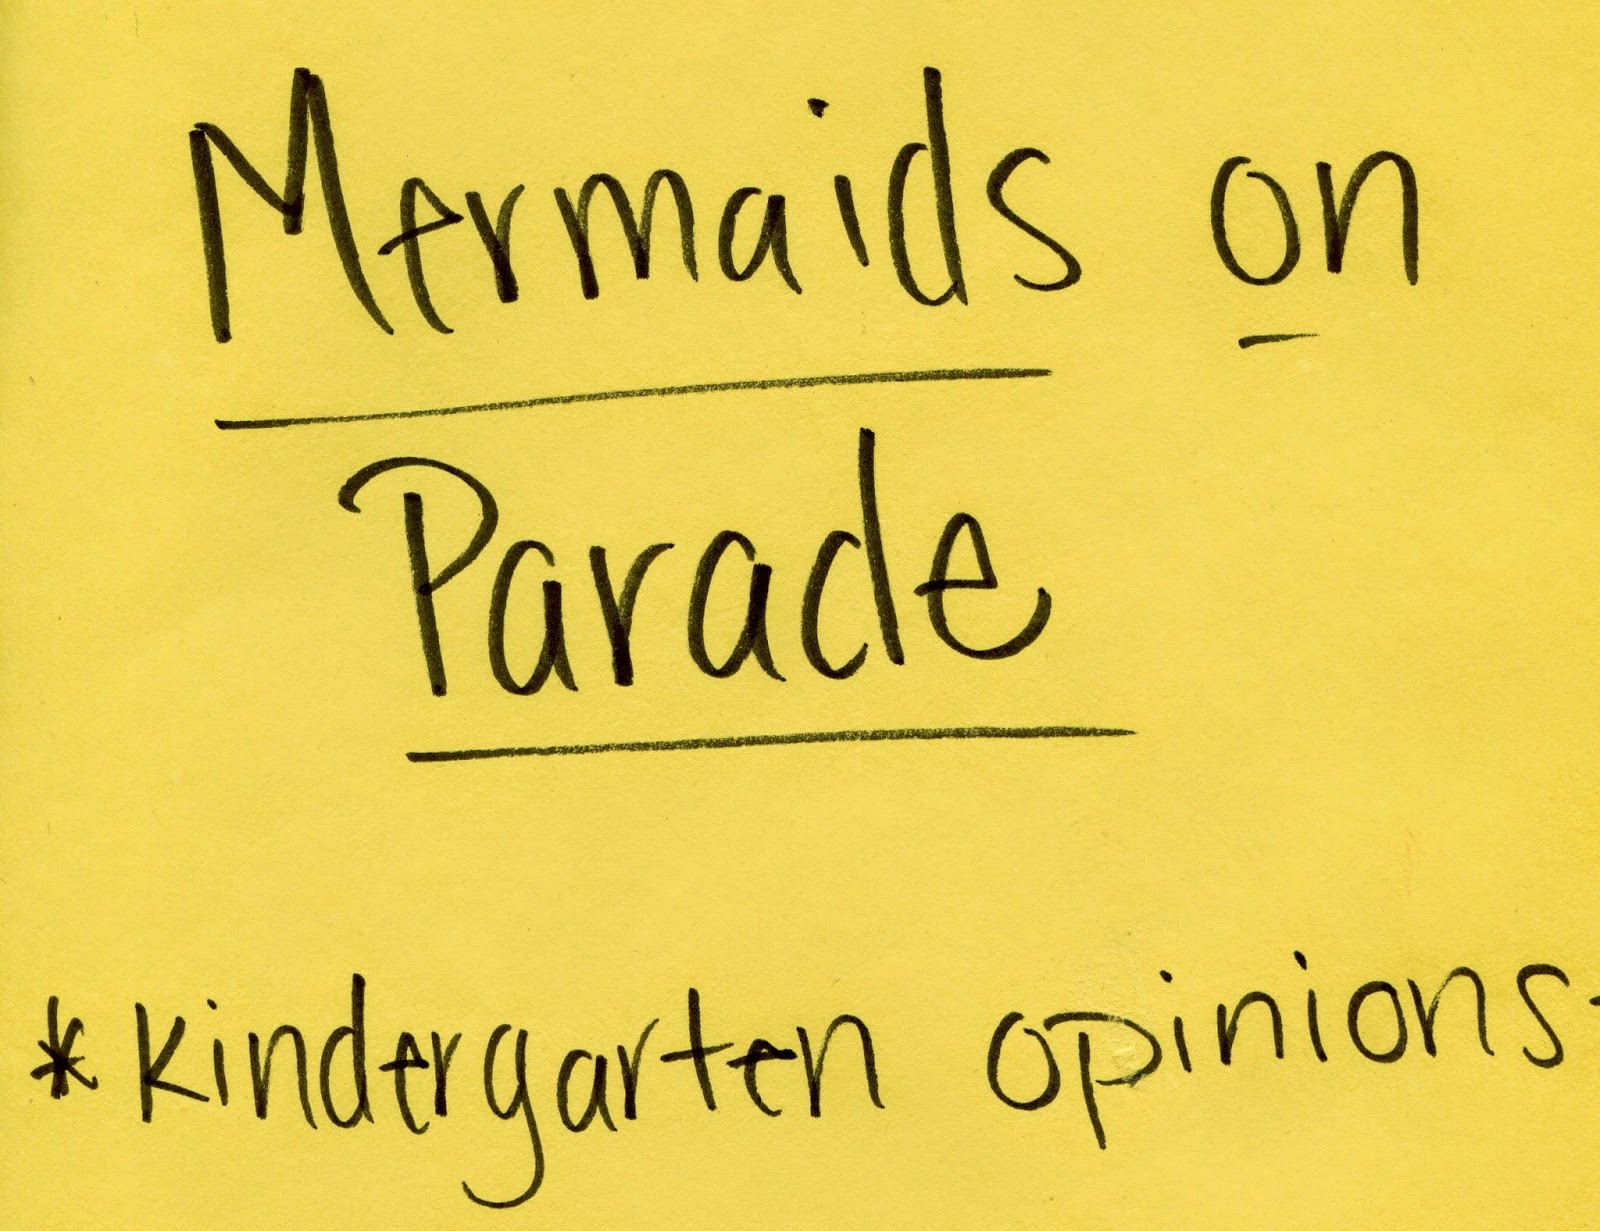 Mermaids on
Parade
*Kindergarten opinions-